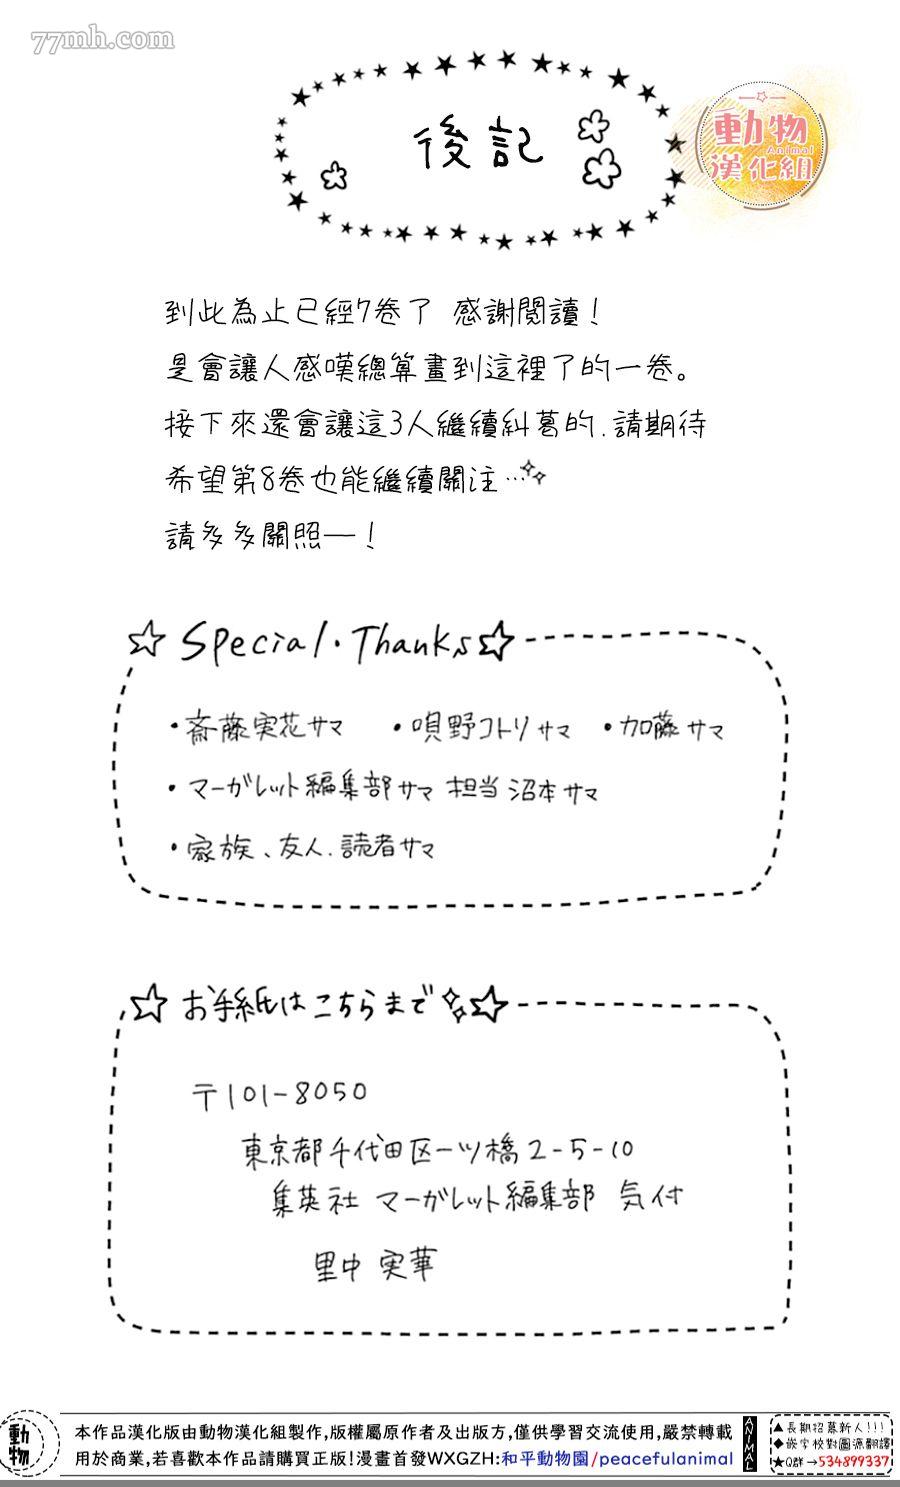 77mh.com
後記
動物
Animal
漢化組
到此為止已經7卷了 感謝閱讀！
是會讓人感嘆總算畫到這裡了的一卷。
接下來還會讓這3人繼續糾葛的.請期待
希望第8卷也能繼續關注…
請多多關照—！
☆Special・Thanks☆
・斎藤実花サマ ・唄野コトリサマ ・加藤サマ
・マーガレット編集部サマ 担当 沼本サマ
・家族、友人、読者サマ
☆お手紙はこちらまで☆
〒101-8050
東京都千代田区一ツ橋2-5-10
集英社 マーガレット編集部 気付
里中 実華
動物
本作品漢化版由動物漢化組製作,版權屬原作者及出版方,僅供學習交流使用,嚴禁轉載
用於商業,若喜歡本作品請購買正版!漫畫首發WXGZH:和平動物園/peacefulanimal
ANIMAL
▲長期招募新人!!!
◆嵌字校對圖源翻譯
★Q群→534899337